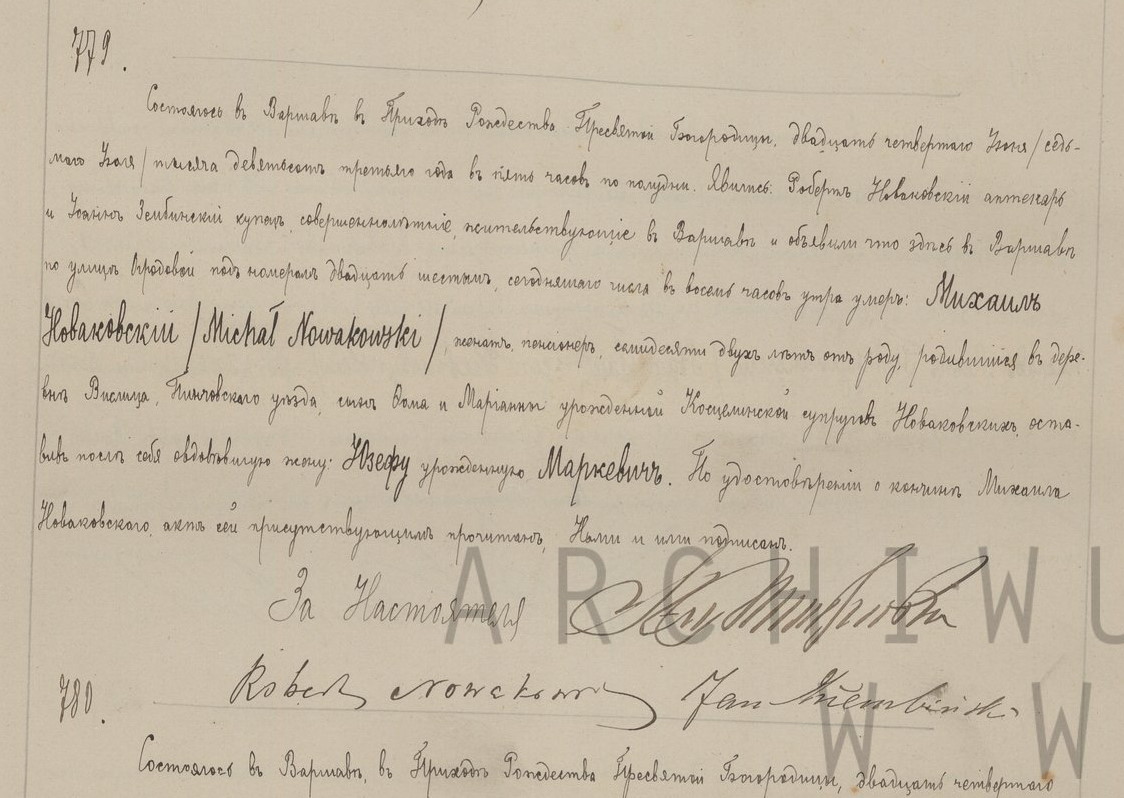 779.
Состоялось въ Варшавѣ въ Приходѣ Рождества Пресвятой Богородицы, двадцать четвертаго Іюня / седь-
маго Іюля / тысяча девятьсотъ третьяго года въ пять часовъ по полудни. Явились: Робертъ Новаковскій аптекарь
и Іоаннъ Зембинскій купецъ, совершеннолѣтніе, жительствующіе въ Варшавѣ и объявили что здѣсь въ Варшавѣ
по улицѣ подъ номеромъ двадцать шестымъ, сегодняшняго числа въ восемь часовъ утра умеръ: Михаилъ
Новаковскій / Michał Nowakowski /, женатъ, пенсіонеръ, семидесяти двухъ лѣтъ отъ роду, родившійся въ дере-
внѣ Вислица, Пинчовскаго уѣзда, сынъ Ѳома и Маріанны урожденной Косцелинской супруговъ Новаковскихъ, оста-
вивъ послѣ себя овдовѣвшую жену: Юзефу урожденную Маркевичъ. По удостовѣреніи о кончинѣ Михаила
Новаковскаго, актъ сей присутствующимъ прочитанъ, Нами и ими подписанъ.
За Настоятеля
Robert Nowakowski Jan Ziembiński
780.
Состоялось въ Варшавѣ, въ Приходѣ Рождества Пресвятой Богородицы, двадцать четвертаго
ARCHIWU
W W